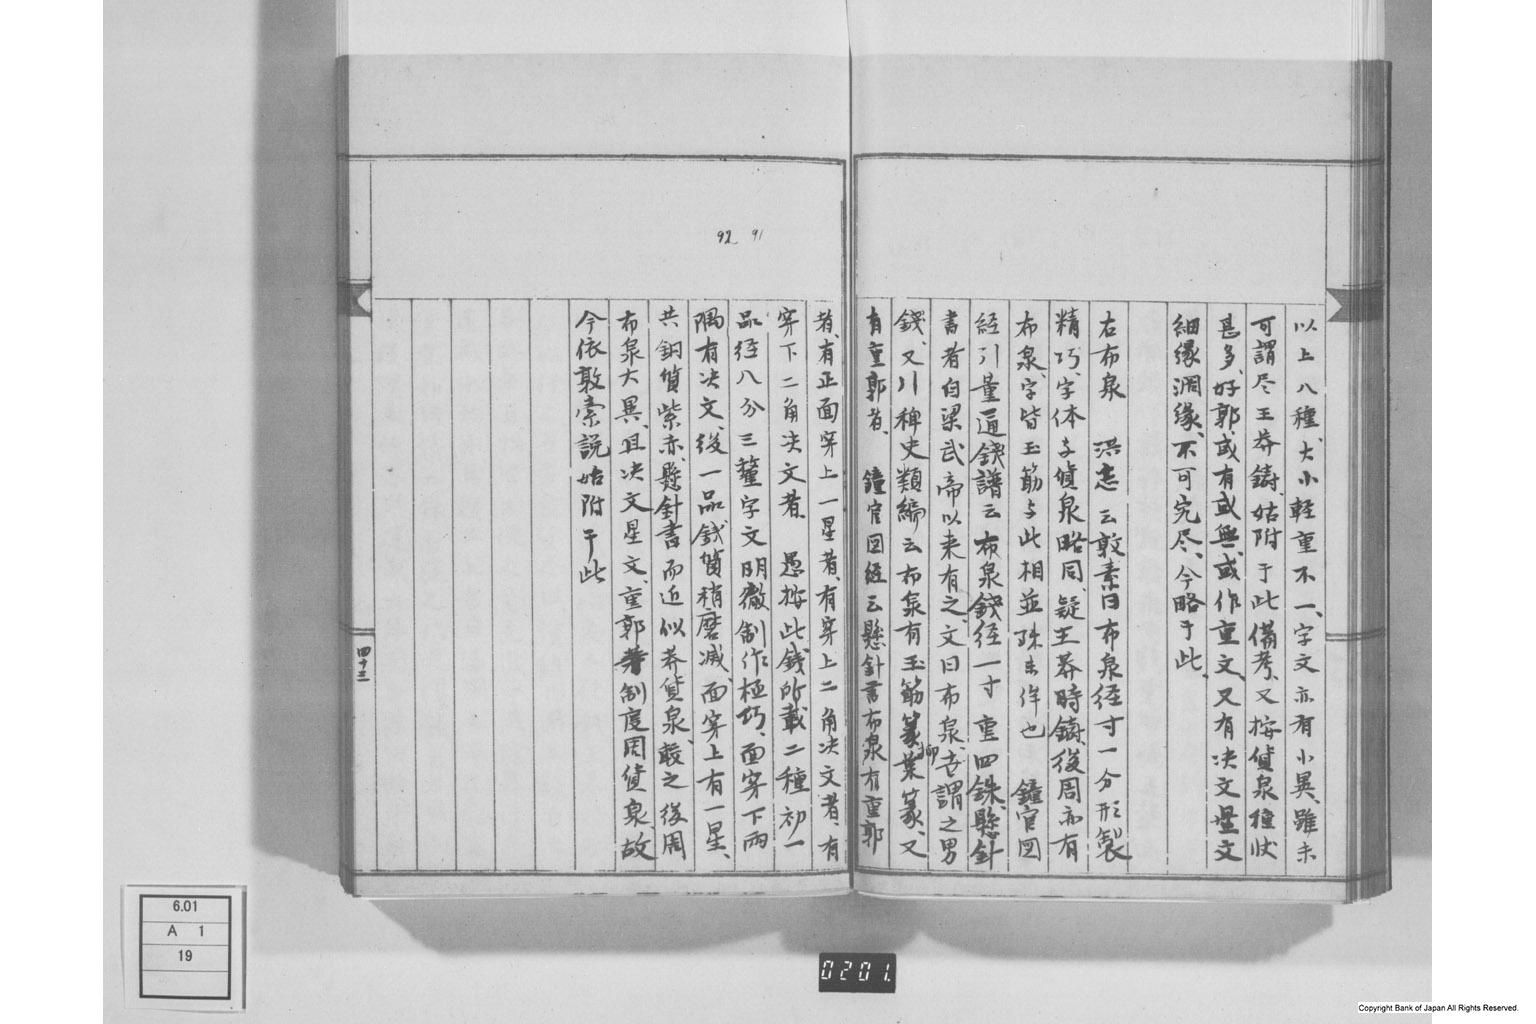 以上八種、大小軽重不一、字文亦有小異、雖未
可謂尽王莽鋳、姑附于此備考、又按貨泉種状
甚多、好郭、或有或無、或作重文、又有决文星文
細縁濶縁、不可究尽、今略于此、
右布泉　洪志云敦素曰布泉径寸一分形製
精巧、字体与貨泉略同、疑王莽時鋳、後周亦有
布泉、字皆玉筯与此相並殊未侔也　鐘官図
経引董逌銭譜云布泉銭径一寸重四銖、懸針
書者自梁武帝以来有之、文曰布泉、世謂之男
銭、又引稗史類編云布泉有玉筯篆柳葉篆、又
有重郭者、　鐘官図経云懸針書布泉有重郭
者、有正面穿上一星者、有穿上二角决文者、有
穿下二角决文者、　愚按此銭所載二種初一
品径八分三釐字文明徹制作極巧、面穿下両
隅有决文、後一品銭質稍磨滅、面穿上有一星、
共銅質紫赤、懸針書而近似莽貨泉、較之後周
布泉大異、且决文星文、重郭等制度周貨泉、故
今依敦素説姑附于此
92 91
四十三
6.01
A 1
19
0201.
Copyright Bank of Japan All Rights Reserved.